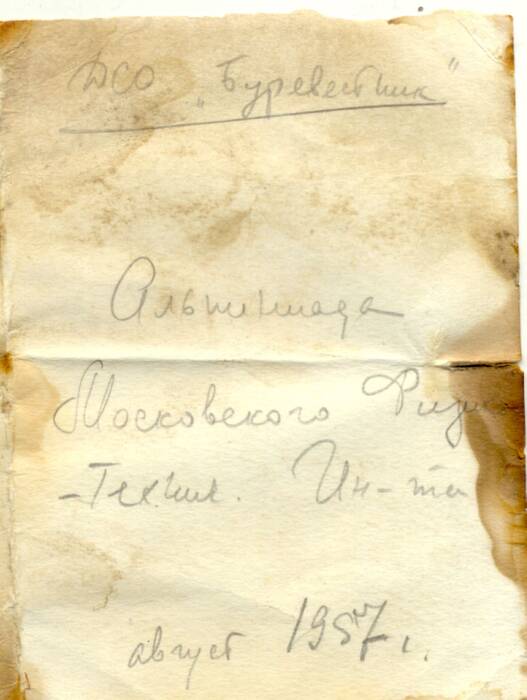 ДСО „Буревестник"
Альпиниада
Московского Физико
-Технич. Ин-та
август 1957 г.